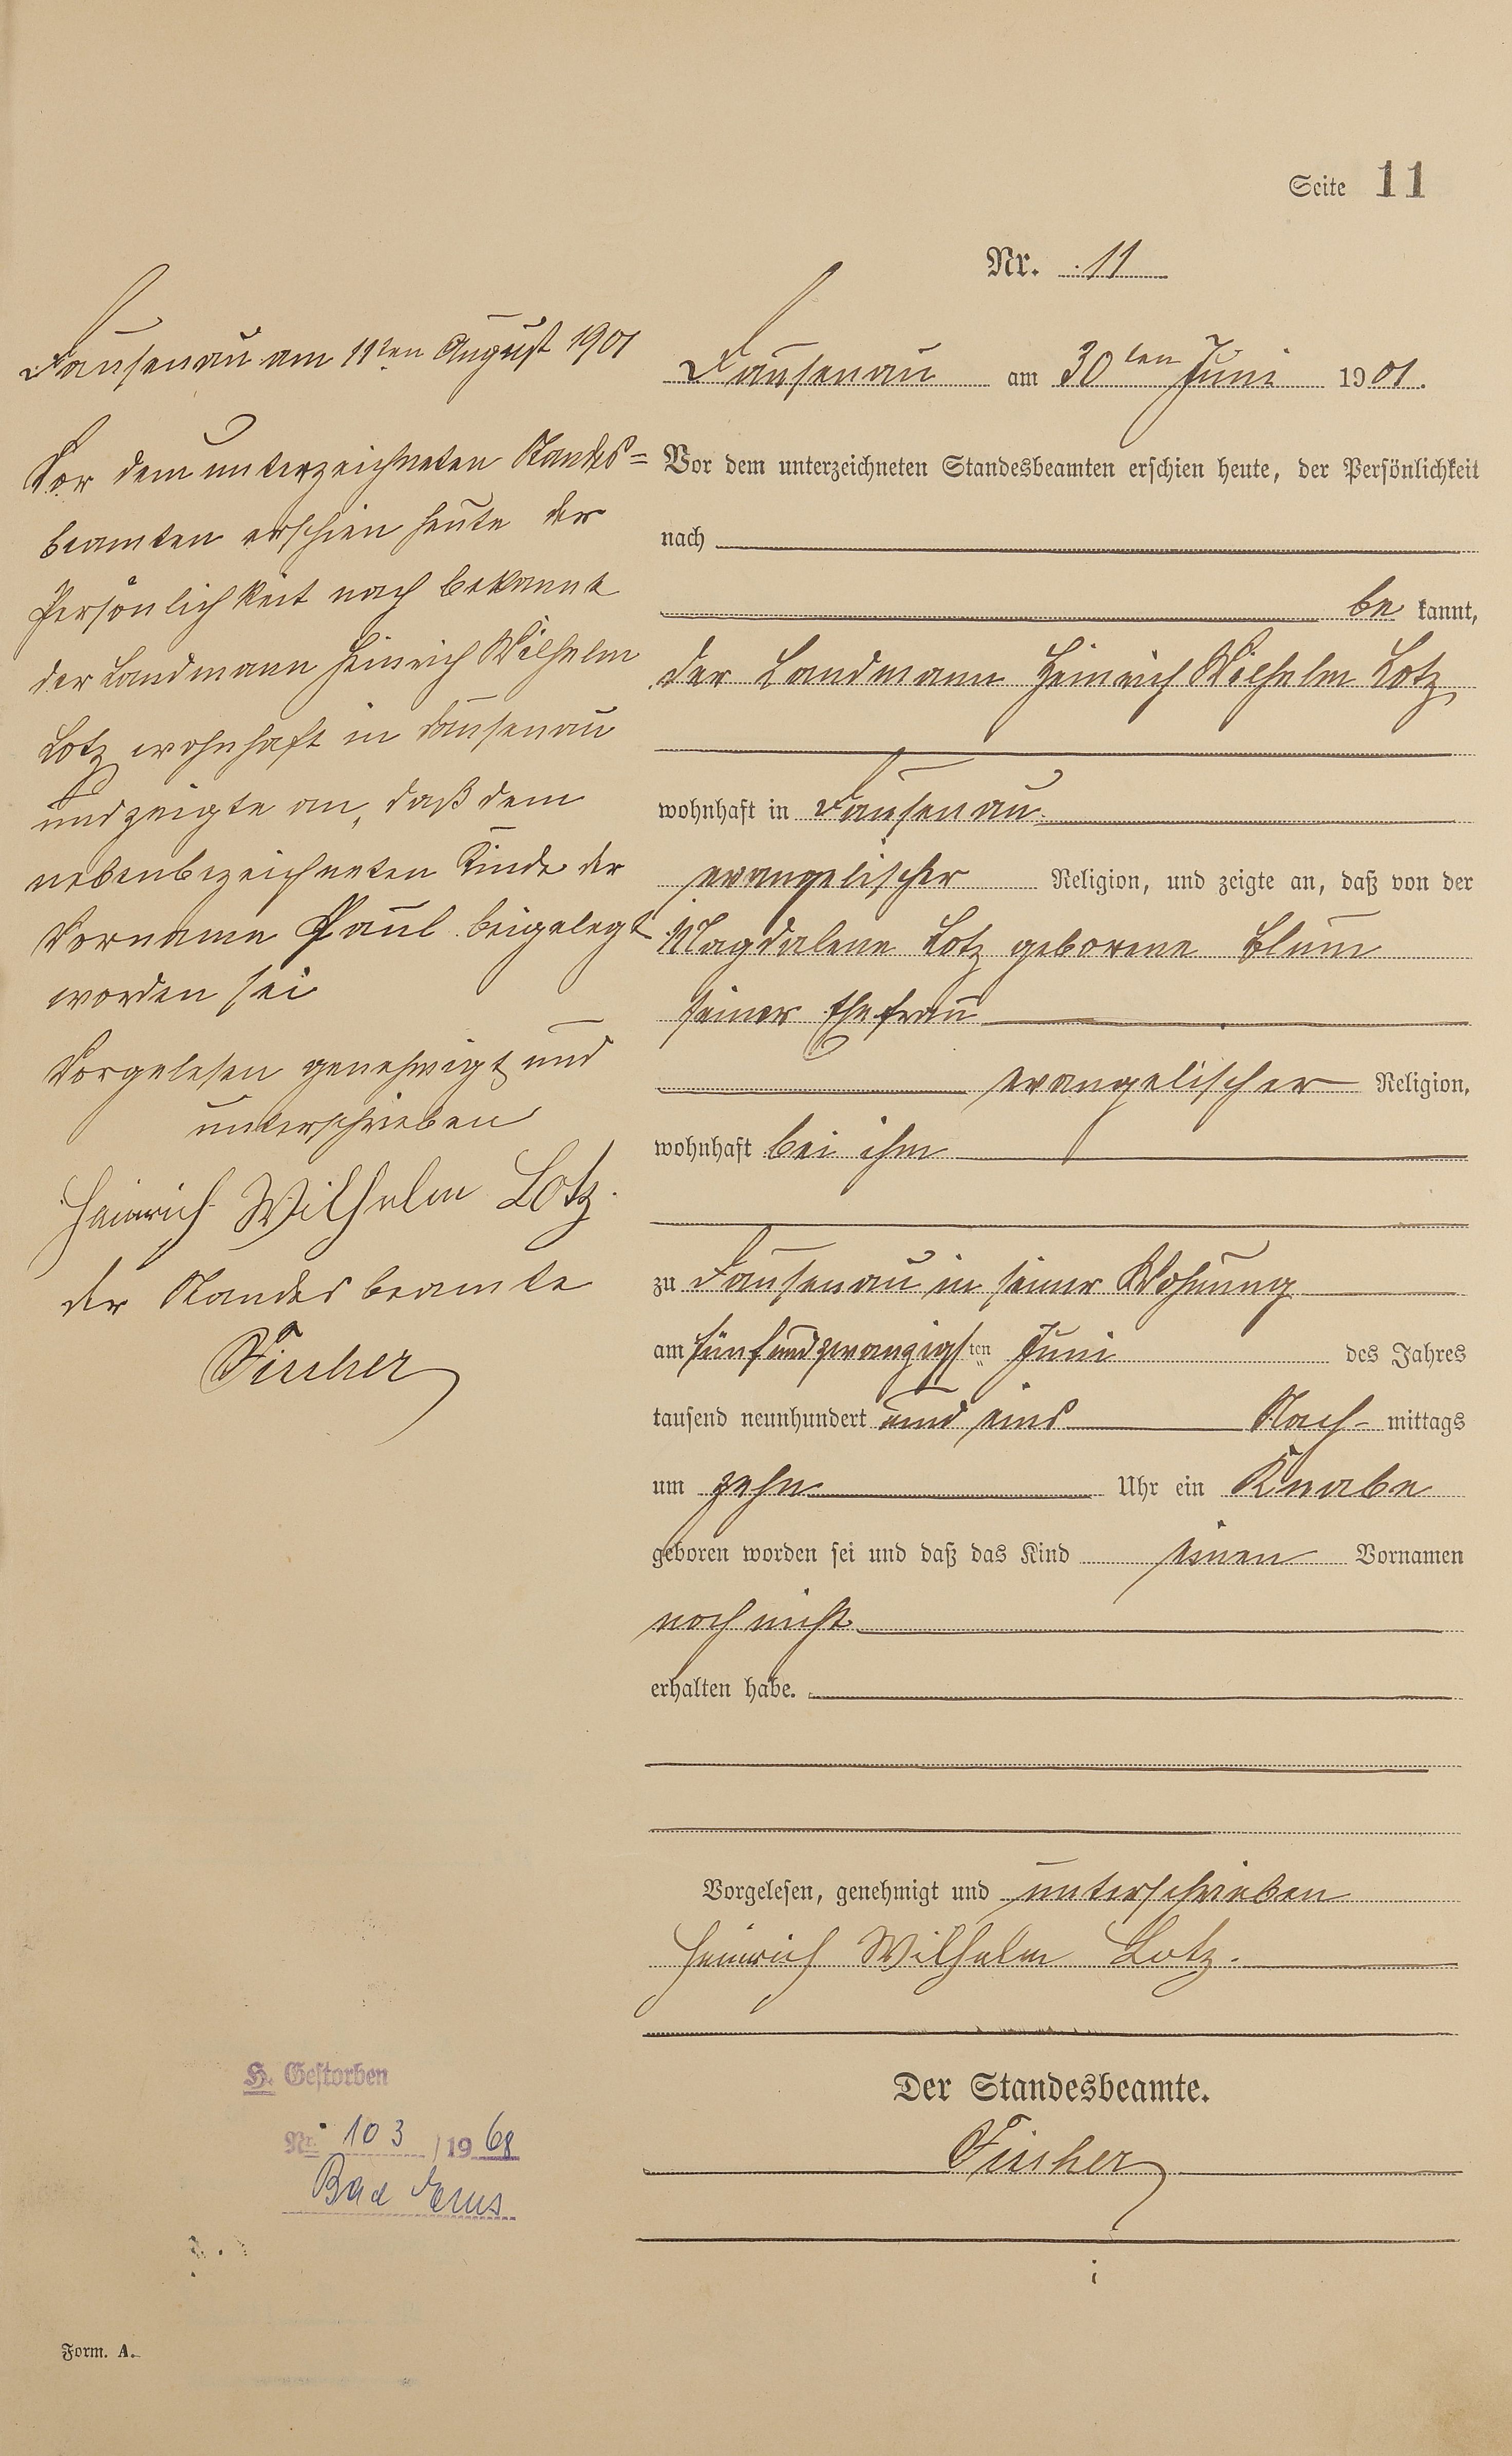 Seite 11
Nr. 11
Dausenau am 11ten August 1901
Vor dem unterzeichneten Standes=
beamten erschien heute der
Persönlichkeit nach bekannt
der Landmann Heinrich Wilhelm
Lotz wohnhaft in Dausenau
und zeigte an, daß dem
nebenbezeichneten Kinde der
Vorname Paul beigelegt
worden sei
Vorgelesen genehmigt und
unterschrieben
Heinrich Wilhelm Lotz.
der Standesbeamte
Fischer
Dausenau am 30ten Juni 1901.
Vor dem unterzeichneten Standesbeamten erschien heute, der Persönlichkeit
nach
bekannt,
der Landmann Heinrich Wilhelm Lotz
wohnhaft in Dausenau
evangelischer Religion, und zeigte an, daß von der
Magdalene Lotz geborene Blum
seiner Ehefrau
evangelischer Religion,
wohnhaft bei ihm
zu Dausenau in seiner Wohnung
am fünfundzwanzigsten Juni des Jahres
tausend neunhundert und eins Nach- mittags
um zehn Uhr ein Knabe
geboren worden sei und daß das Kind einen Vornamen
noch nicht
erhalten habe.
Vorgelesen, genehmigt und unterschrieben
Heinrich Wilhelm Lotz.
Der Standesbeamte.
Fischer
H. Gestorben
Nr. 103 /1968
Bad Ems
Form. A.